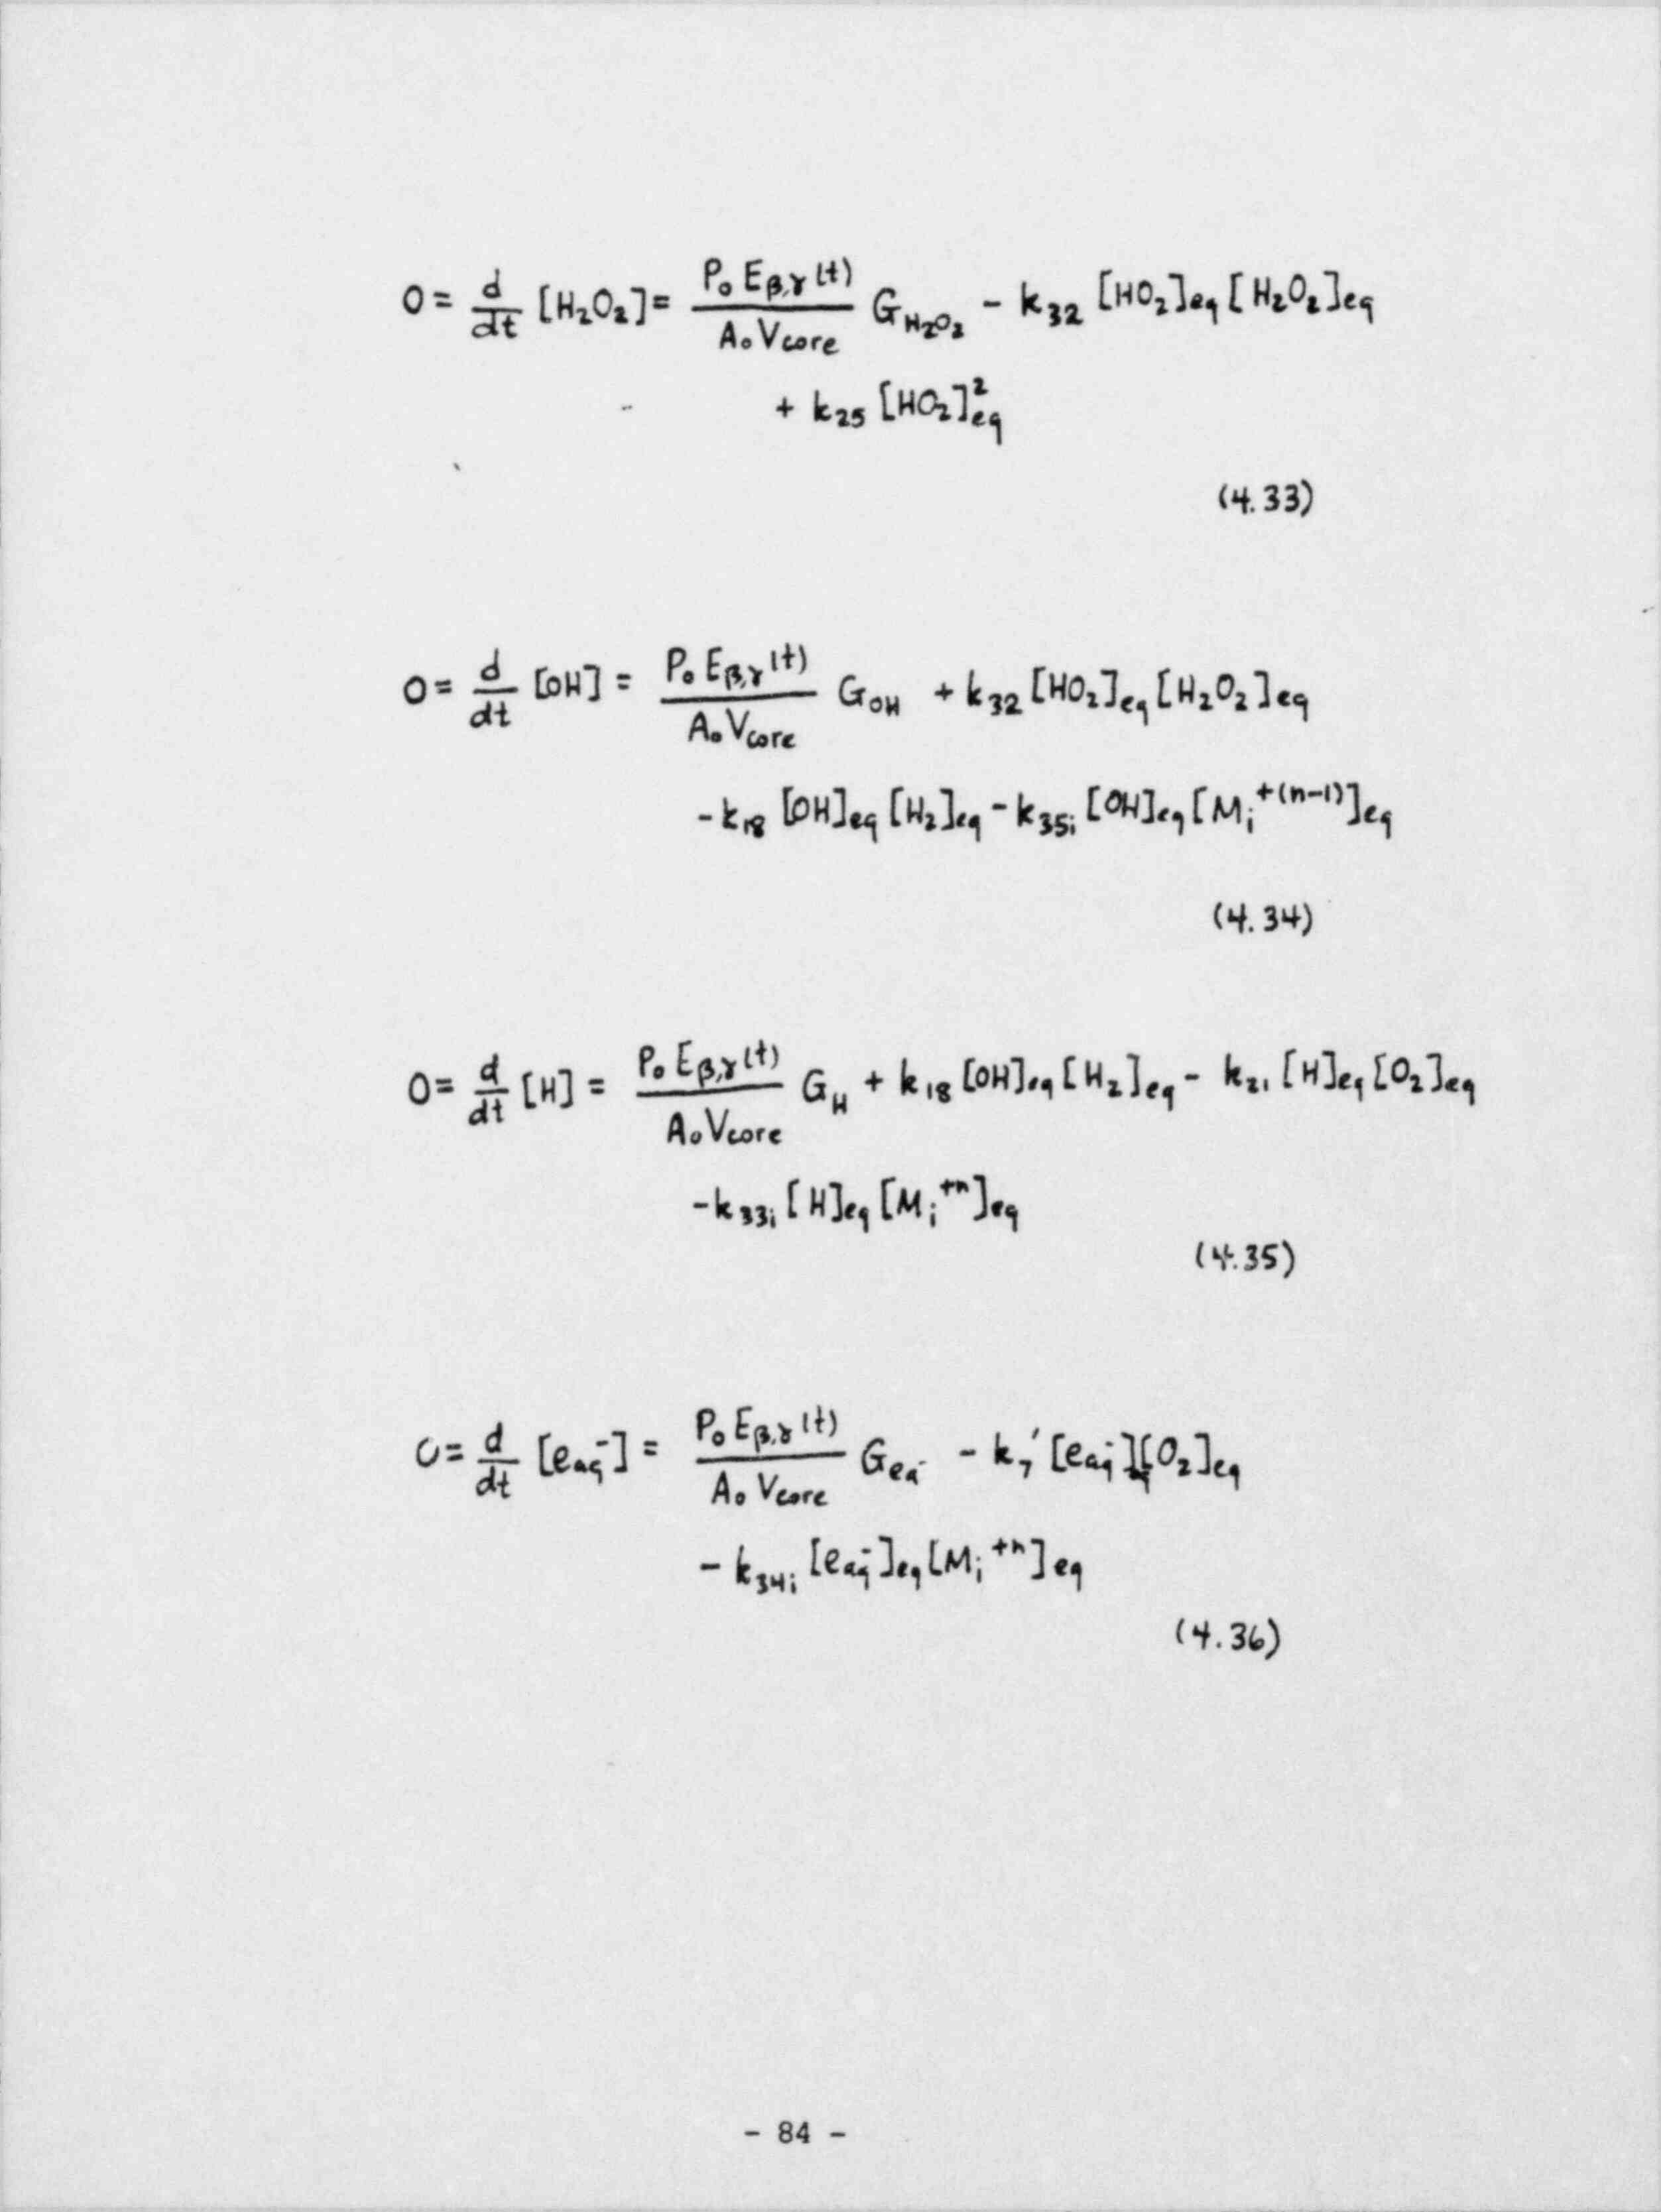 0 = d/dt [H₂O₂] = P₀ E_β,γ(t) / A₀ V_core G_H₂O₂ − k₃₂ [HO₂]_eq [H₂O₂]_eq
+ k₂₅ [HO₂]²_eq
(4.33)
0 = d/dt [OH] = P₀ E_β,γ(t) / A₀ V_core G_OH + k₃₂ [HO₂]_eq [H₂O₂]_eq
− k₁₈ [OH]_eq [H₂]_eq − k_35i [OH]_eq [M_i^+(n−1)]_eq
(4.34)
0 = d/dt [H] = P₀ E_β,γ(t) / A₀ V_core G_H + k₁₈ [OH]_eq [H₂]_eq − k₂₁ [H]_eq [O₂]_eq
− k_33i [H]_eq [M_i^+n]_eq
(4.35)
0 = d/dt [e_aq^−] = P₀ E_β,γ(t) / A₀ V_core G_ea^− − k₇′ [e_aq^−]_eq [O₂]_eq
− k_34i [e_aq^−]_eq [M_i^+n]_eq
(4.36)
- 84 -